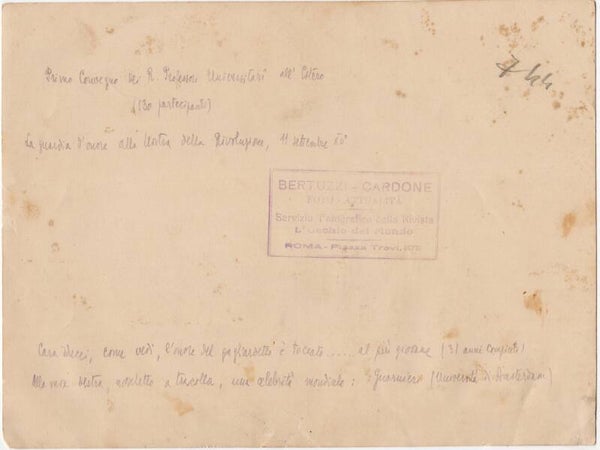 Primo Convegno dei R. Professori Universitari all' Estero
(130 partecipanti)
La guardia d'onore alla Mostra della Rivoluzione, 11 settembre
BERTUZZI - CARDONE
FOTO-ATTUALITÀ
Servizio Fotografico della Rivista
L'Occhio del Mondo
ROMA - Piazza Trevi,
Cara, come vedi, l'onore del gagliardetto è toccato..... al più giovane (31 anni compiuti)
Alla mia destra, a tracolla, una celebrità mondiale: Guarnieri (Università di Amsterdam)